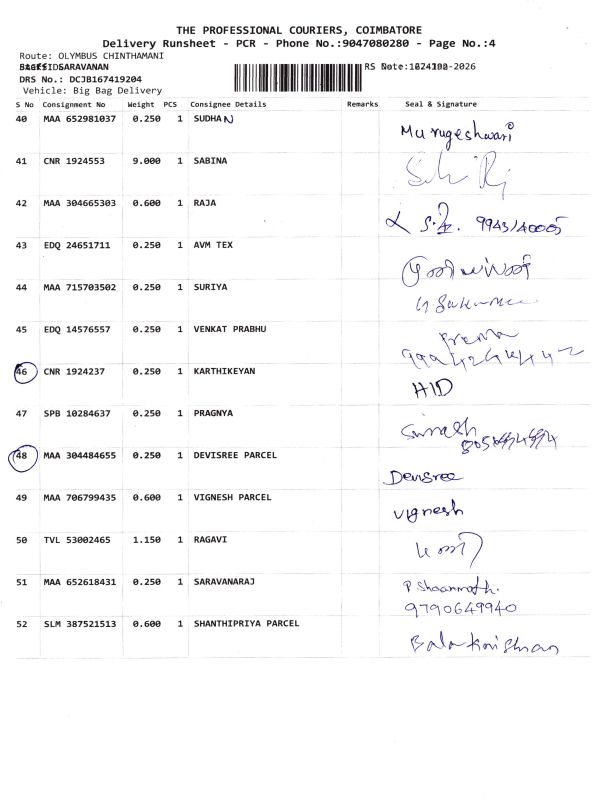 THE PROFESSIONAL COURIERS, COIMBATORE
Delivery Runsheet - PCR - Phone No.:9047080280 - Page No.:4
Route: OLYMBUS CHINTHAMANI
SARAVANAN
DRS No.: DCJB167419204
Vehicle: Big Bag Delivery
S No Consignment No Weight PCS Consignee Details Remarks Seal & Signature
40 MAA 652981037 0.250 1 SUDHAN Murugeshwari
41 CNR 1924553 9.000 1 SABINA
42 MAA 304665303 0.600 1 RAJA
43 EDQ 24651711 0.250 1 AVM TEX
44 MAA 715703502 0.250 1 SURIYA
45 EDQ 14576557 0.250 1 VENKAT PRABHU Prema
46 CNR 1924237 0.250 1 KARTHIKEYAN HID
47 SPB 10284637 0.250 1 PRAGNYA
48 MAA 304484655 0.250 1 DEVISREE PARCEL Devisree
49 MAA 706799435 0.600 1 VIGNESH PARCEL Vignesh
50 TVL 53002465 1.150 1 RAGAVI
51 MAA 652618431 0.250 1 SARAVANARAJ
9790649940
52 SLM 387521513 0.600 1 SHANTHIPRIYA PARCEL Balakrishnan